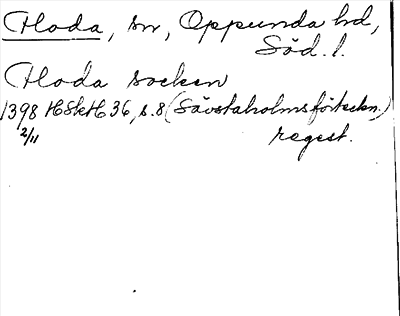 Floda, sn, Oppunda hd,
Söd. l.
Floda socken
1398 HSkH 36, s. 8 (Sävstaholmsförteckn.)
2/11 regest.